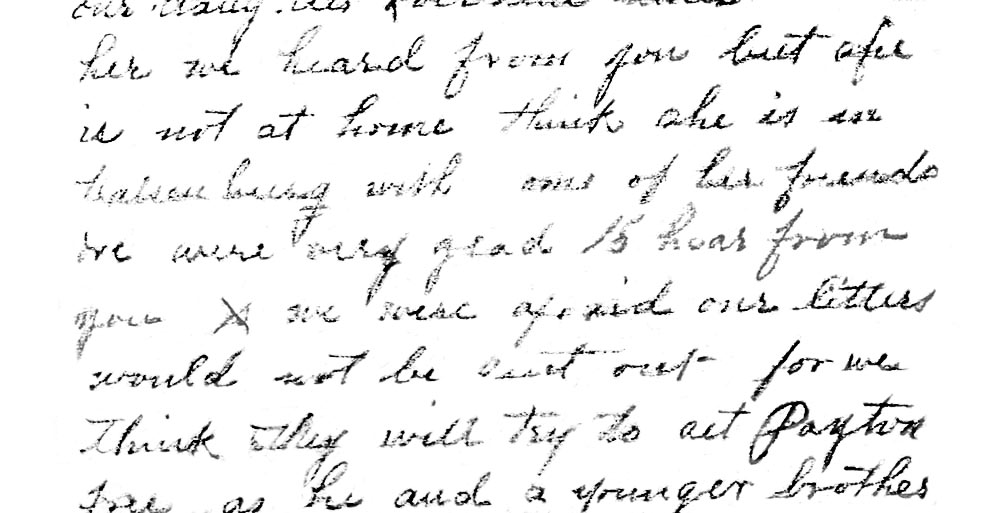 our
her we heard from you but she
is not at home think she is in
with one of her friends
We were very glad to hear from
you X we were afraid our letters
would not be sent out for we
think they will try to get Payton
free as he and a younger brother